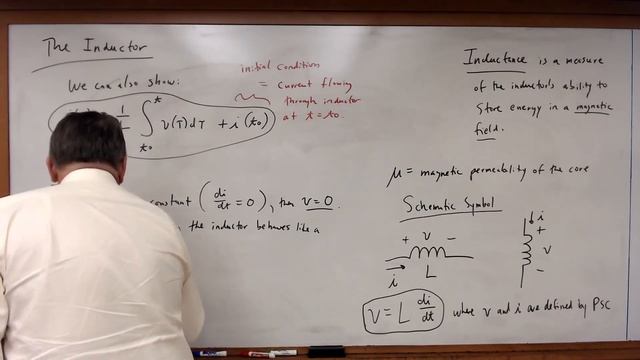 The Inductor
We can also show:
1 ∫ t t₀ v(τ)dτ + i(t₀)
initial condition
= current flowing
through inductor
at t=t₀.
constant (di/dt = 0), then v=0.
the inductor behaves like a
Inductance is a measure
of the inductor's ability to
store energy in a magnetic
field.
μ = magnetic permeability of the core
Schematic Symbol
+ v −
i
L
i
+
v
−
v = L di/dt where v and i are defined by PSC